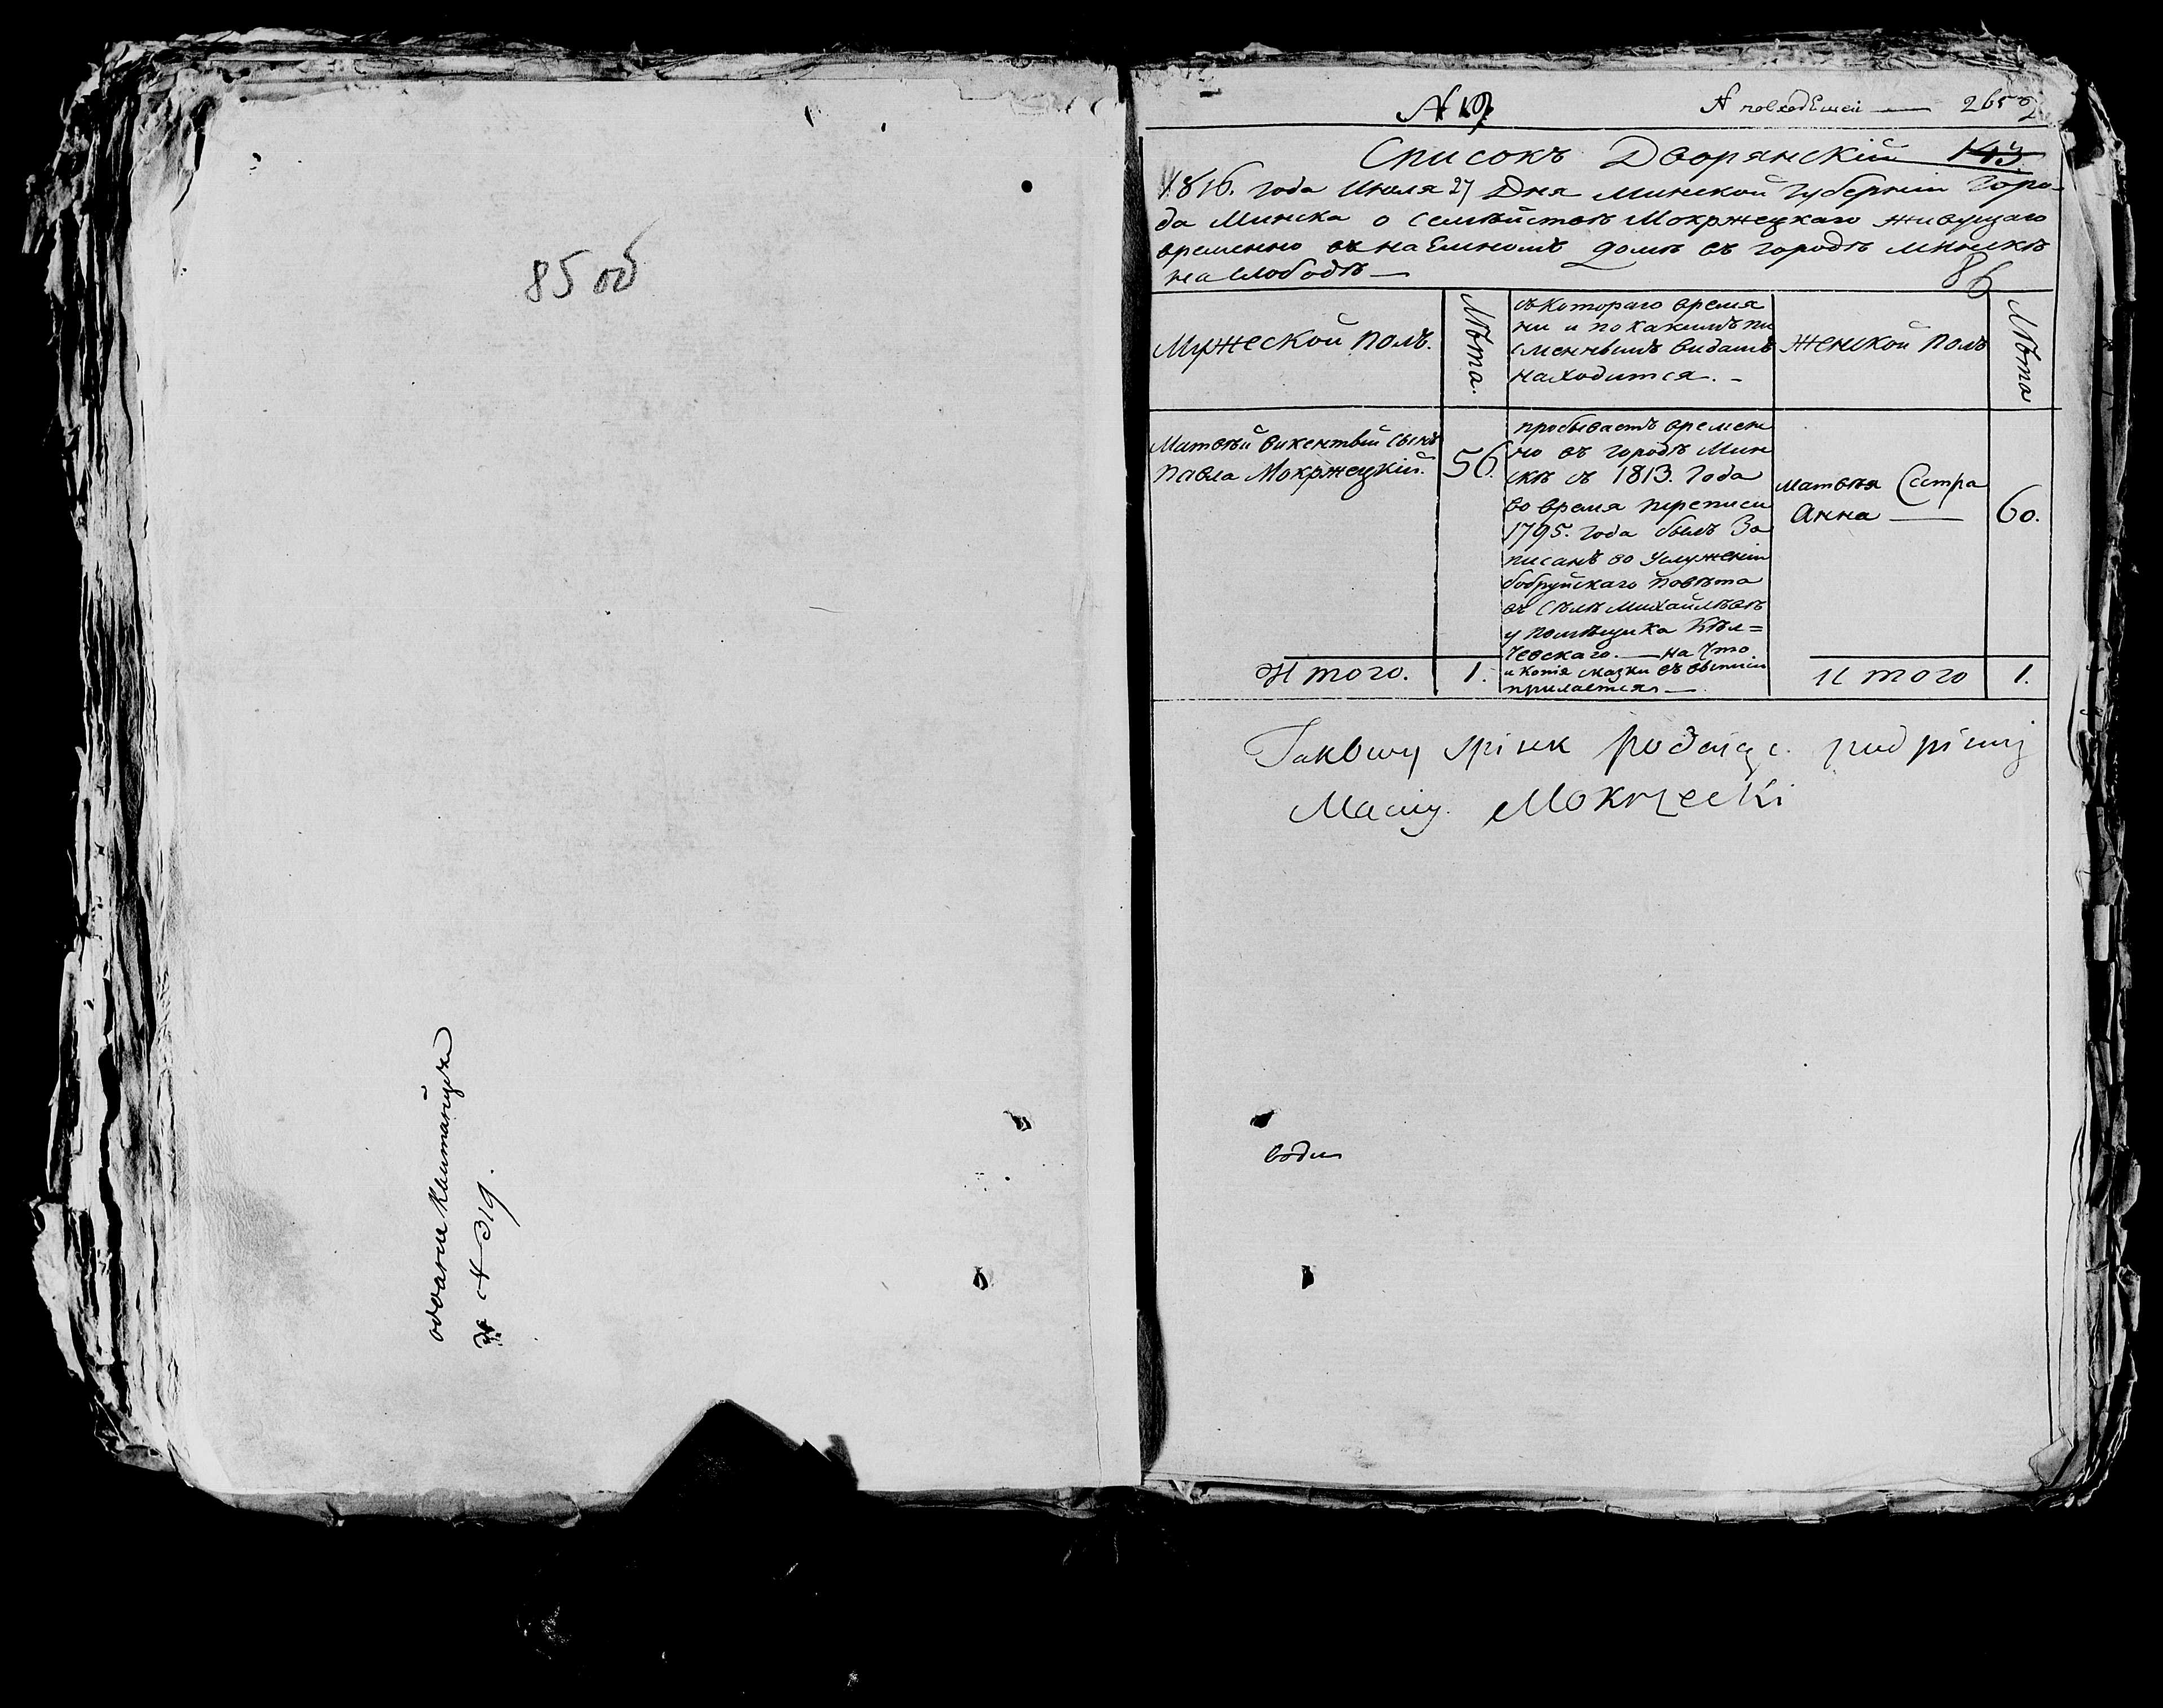 85 об
№ 319.
№ 19
№ 265
Списокъ Дворянскій 143
1816. года Июля 27 Дня Минской Губерніи Горо-
да Минска о Семѣйствѣ Мокржецкаго живущаго
временно въ наемномъ домѣ въ городѣ Минскѣ
на слободѣ —
86
Мужеской полъ.
Лѣта.
съ котораго время
ни и по какимъ пи
сменнымъ видамъ
находится. -
Женской полъ
Лѣта
Матвѣй Викентьий сынъ
Павла Мокржецкій.
56.
пробываетъ времен
но въ городѣ Мин
скѣ съ 1813. года
во время переписи
1795. года былъ За
писанъ во Услуженіи
бобруйскаго повѣта
въ Сѣлѣ Михайлѣвѣ
у помѣщика Кѣл=
чевскаго. — на что
и копія сказки въ
прилается —
Матвѣя Сестра
Анна —
60.
Итого.
1.
Итого
1.
Takowy spisek podaiąc podpisuię
Maciey Mokrzecki